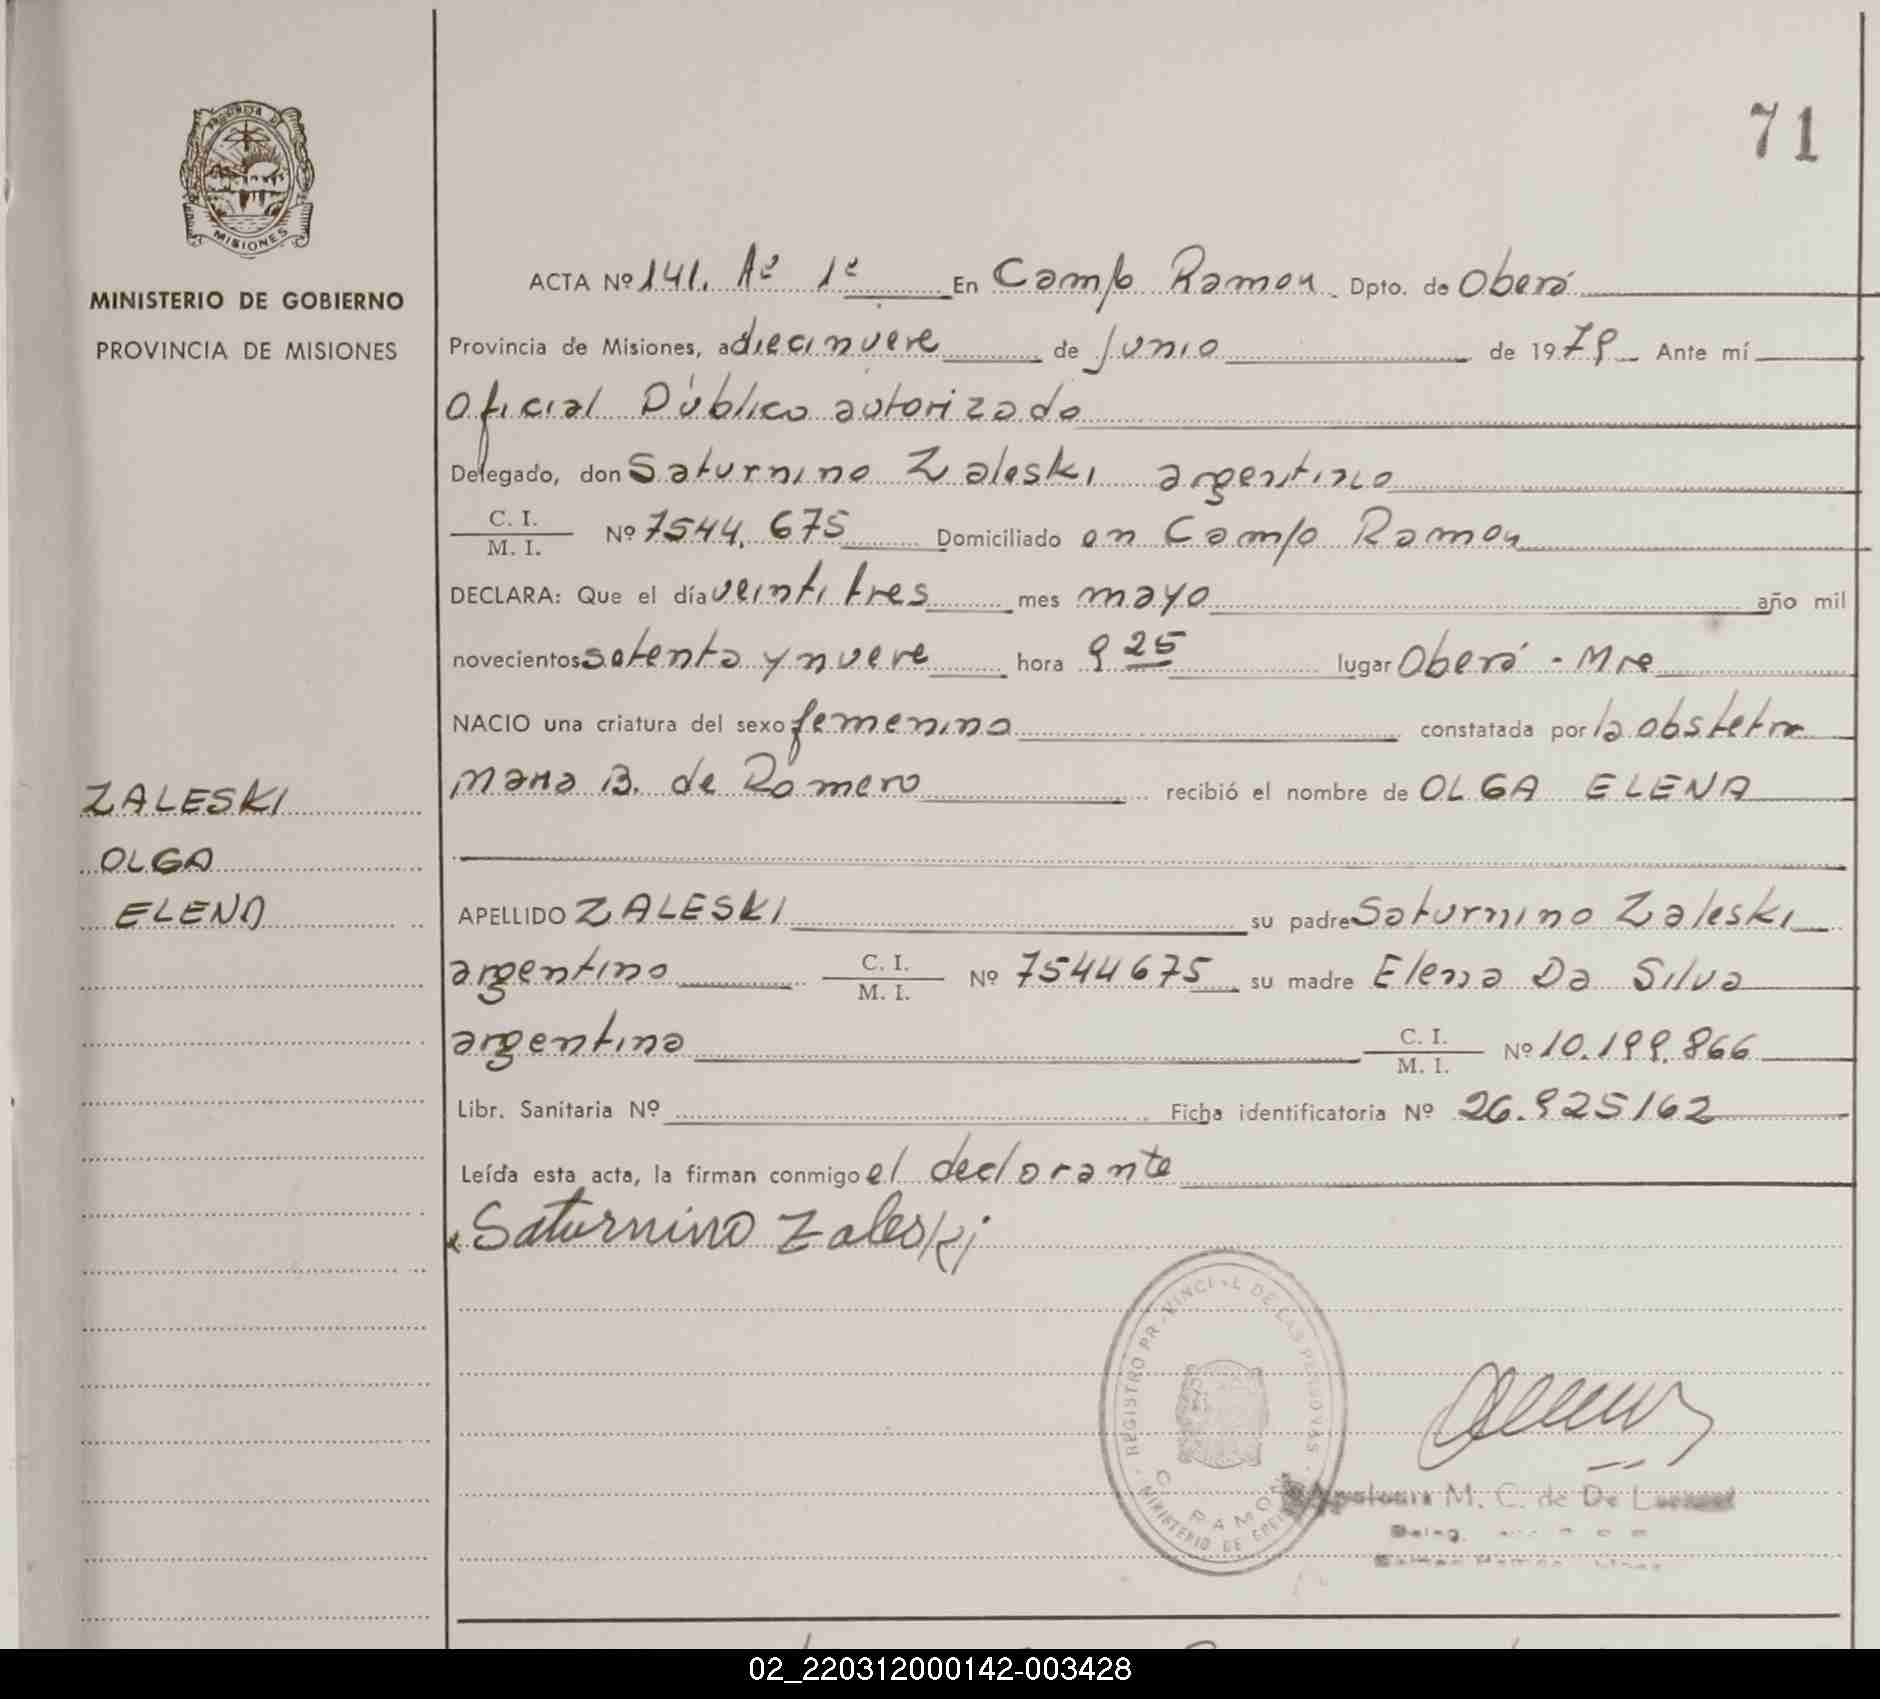 71
PROVINCIA DE
MISIONES
MINISTERIO DE GOBIERNO
PROVINCIA DE MISIONES
ZALESKI
OLGA
ELENA
ACTA Nº 141. Aº 1º En Campo Ramon Dpto. de Oberá
Provincia de Misiones, a diecinueve de Junio de 1979 Ante mí
Oficial Público autorizado
Delegado, don Saturnino Zaleski argentino
C. I.
M. I. Nº 7544.675 Domiciliado en Campo Ramon
DECLARA: Que el día veintitres mes mayo año mil
novecientos setenta y nueve hora 9 25 lugar Oberá - Mnes
NACIO una criatura del sexo femenino constatada por la obstetra
Maria B. de Romero recibió el nombre de OLGA ELENA
APELLIDO ZALESKI su padre Saturnino Zaleski
argentino C. I.
M. I. Nº 7544675 su madre Elena Da Silva
argentina C. I.
M. I. Nº 10.199.866
Libr. Sanitaria Nº Ficha identificatoria Nº 26.925162
Leída esta acta, la firman conmigo el declarante
Saturnino Zaleski
REGISTRO PROVINCIAL DE LAS PERSONAS
C. RAMON
MINISTERIO DE
M. C. de De
02_220312000142-003428